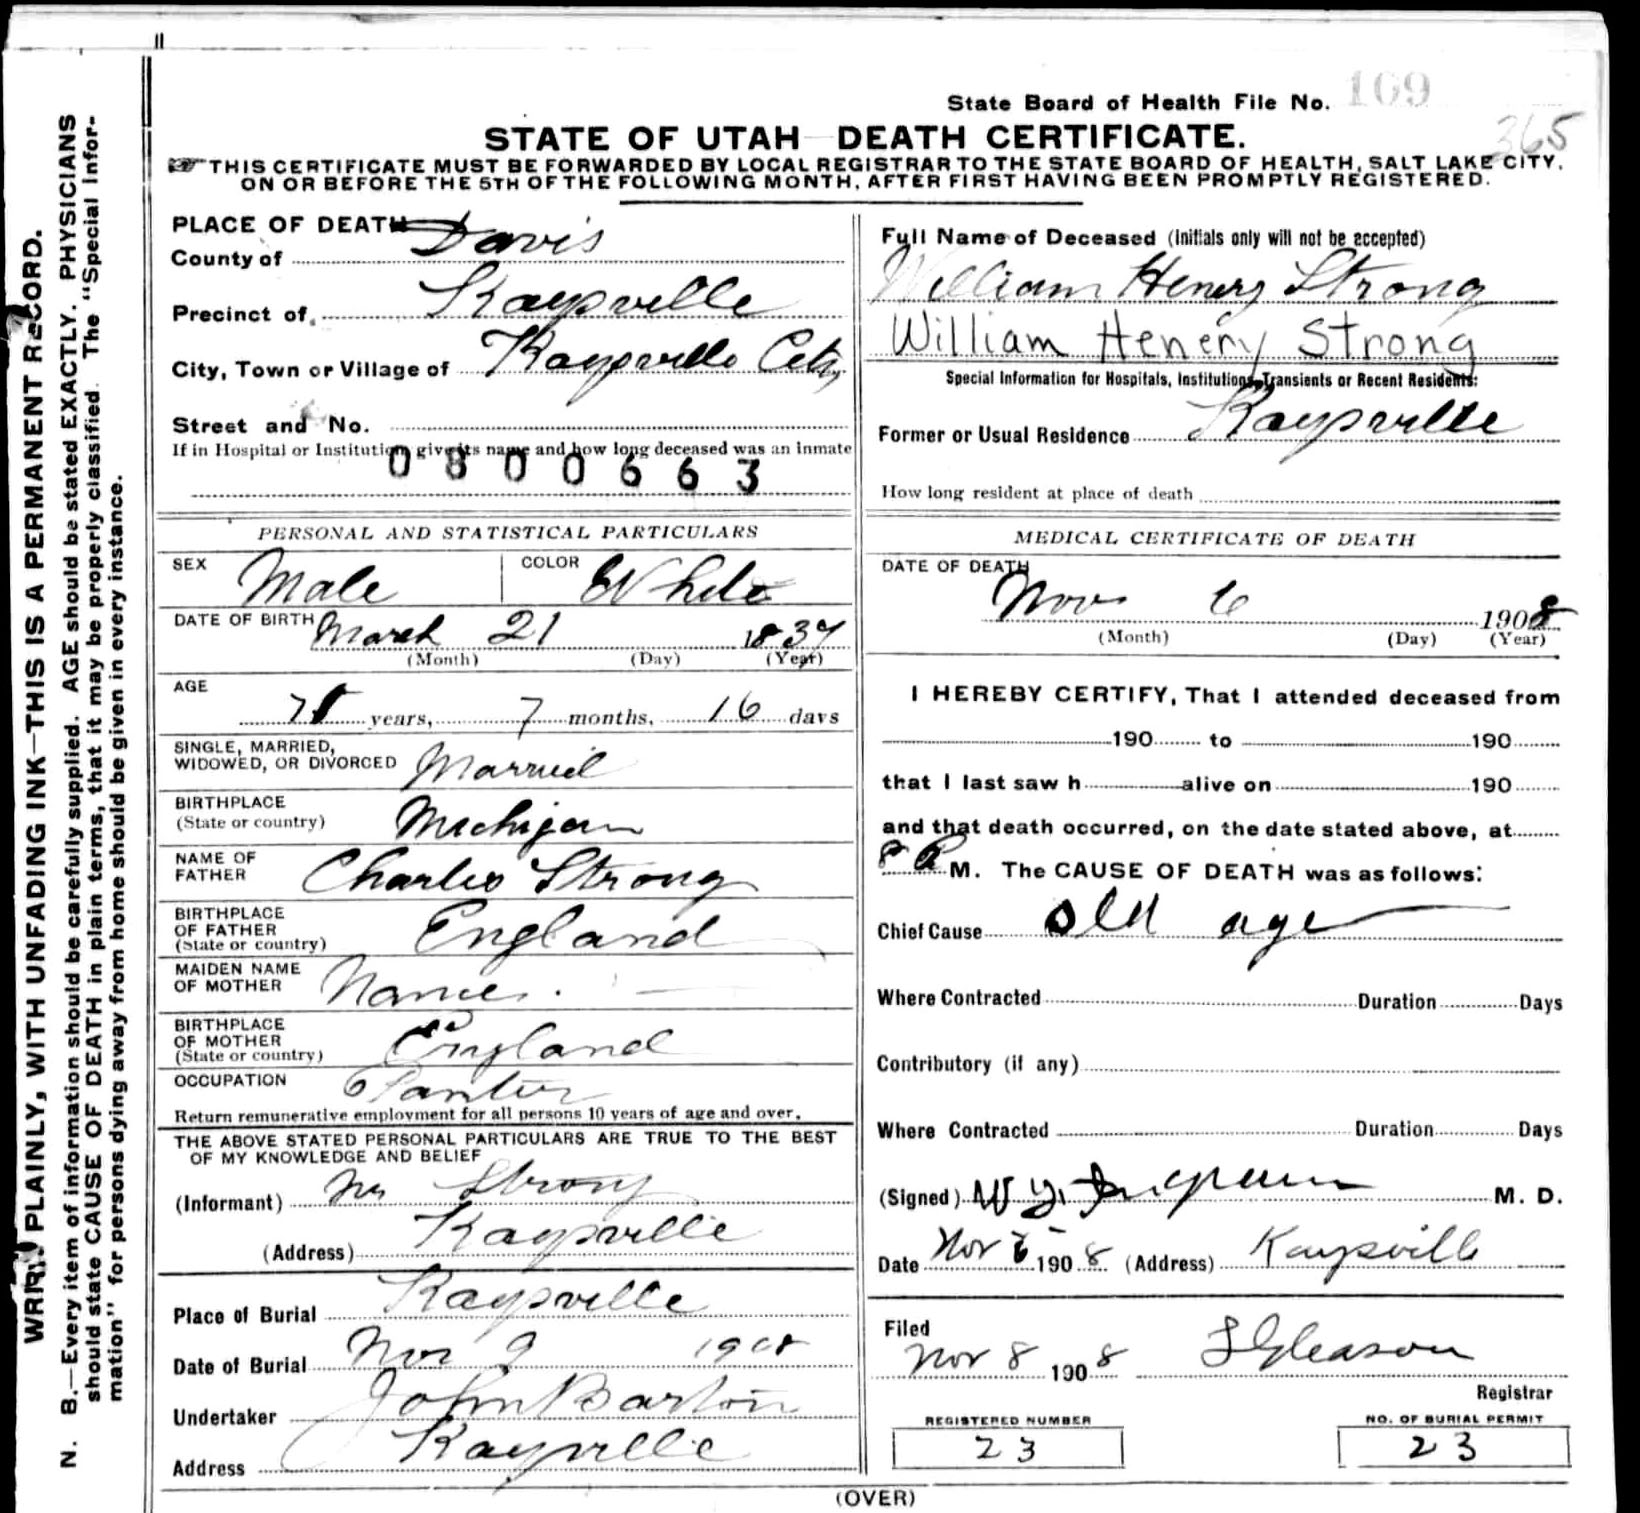 State Board of Health File No. 169
365
STATE OF UTAH—DEATH CERTIFICATE.
THIS CERTIFICATE MUST BE FORWARDED BY LOCAL REGISTRAR TO THE STATE BOARD OF HEALTH, SALT LAKE CITY,
ON OR BEFORE THE 5TH OF THE FOLLOWING MONTH, AFTER FIRST HAVING BEEN PROMPTLY REGISTERED.
WRITE PLAINLY, WITH UNFADING INK—THIS IS A PERMANENT RECORD.
N. B.—Every item of information should be carefully supplied. AGE should be stated EXACTLY. PHYSICIANS
should state CAUSE OF DEATH in plain terms, that it may be properly classified. The "Special Infor-
mation" for persons dying away from home should be given in every instance.
PLACE OF DEATH
County of Davis
Precinct of Kaysville
City, Town or Village of Kaysville City
Street and No.
If in Hospital or Institution give its name and how long deceased was an inmate
0800663
PERSONAL AND STATISTICAL PARTICULARS
SEX Male COLOR White
DATE OF BIRTH March 21 1837
(Month) (Day) (Year)
AGE
71 years, 7 months, 16 days
SINGLE, MARRIED,
WIDOWED, OR DIVORCED Married
BIRTHPLACE
(State or country) Michigan
NAME OF
FATHER Charles Strong
BIRTHPLACE
OF FATHER
(State or country) England
MAIDEN NAME
OF MOTHER
BIRTHPLACE
OF MOTHER
(State or country) England
OCCUPATION
Return remunerative employment for all persons 10 years of age and over.
THE ABOVE STATED PERSONAL PARTICULARS ARE TRUE TO THE BEST
OF MY KNOWLEDGE AND BELIEF
(Informant) Strong
(Address) Kaysville
Place of Burial Kaysville
Date of Burial Nov 9 1908
Undertaker John Barton
Address Kaysville
Full Name of Deceased (Initials only will not be accepted)
William Henery Strong
William Henery Strong
Special Information for Hospitals, Institutions, Transients or Recent Residents:
Former or Usual Residence Kaysville
How long resident at place of death
MEDICAL CERTIFICATE OF DEATH
DATE OF DEATH
Nov 6 1908
(Month) (Day) (Year)
I HEREBY CERTIFY, That I attended deceased from
190 to 190
that I last saw h alive on 190
and that death occurred, on the date stated above, at
8 M. The CAUSE OF DEATH was as follows:
Chief Cause old age
Where Contracted Duration Days
Contributory (if any)
Where Contracted Duration Days
(Signed) M. D.
Date Nov 1908 (Address) Kaysville
Filed
Nov 8 1908 Gleason
Registrar
REGISTERED NUMBER NO. OF BURIAL PERMIT
23 23
(OVER)